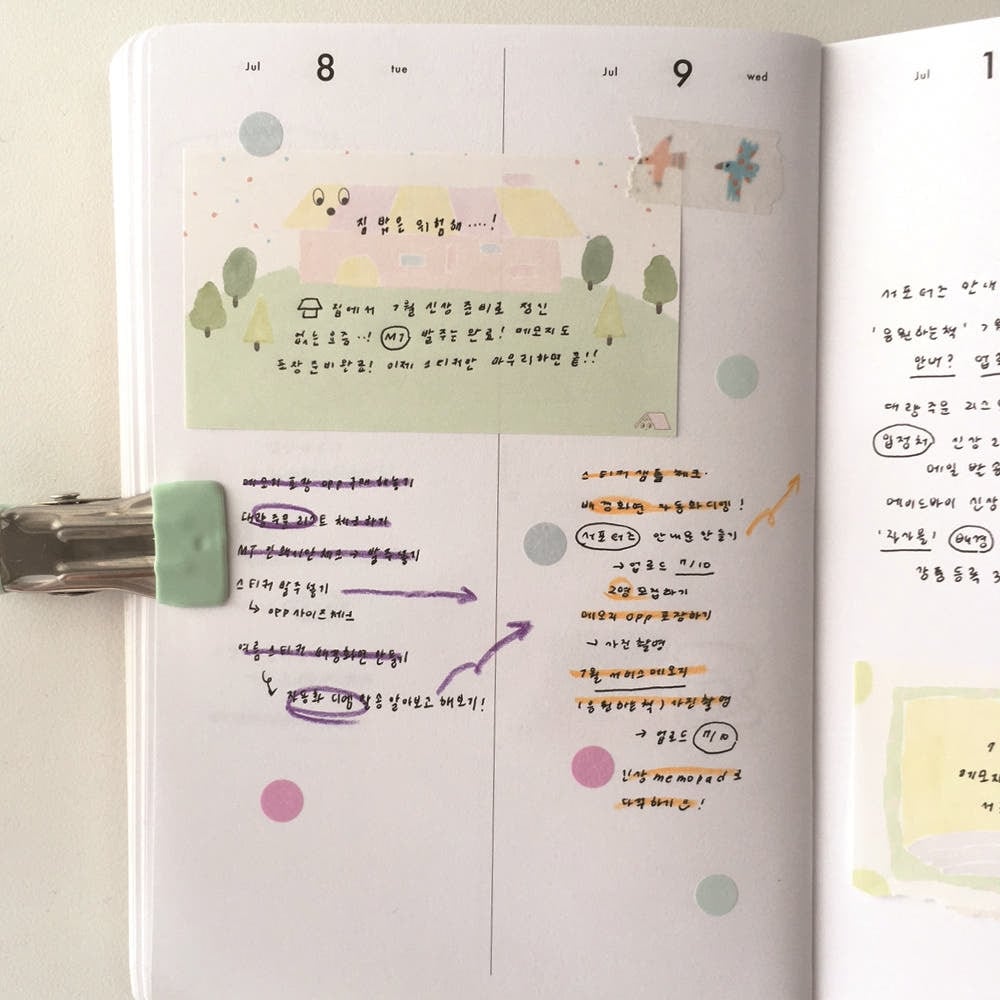 Jul 8 tue
집 밖은 위험해....!
집에서 7월 신상 준비로 정신
없는 요즘..! MT 발주는 완료! 메모지도
포장준비완료! 이제 스티커만 마무리하면 끝!!
메모지 포장 opp 구매해놓기
대량주문 리스트 체크하기
MT 인쇄시안체크 → 발주넣기
스티커 발주넣기
↳ opp 사이즈체크
여름스티커 배경화면 만들기
↳ 자동화 디엠 발송 알아보고 해보기!
Jul 9 wed
스티커 샘플 체크.
배경화면 자동화디엠!
서포터즈 안내문 만들기
→ 업로드 7/10
2명 모집하기
메모지 opp 포장하기
→ 사진촬영
7월 서비스메모지
(응원하는책) 사진촬영
→ 업로드 7/10
신상 memopad로
다꾸하기 !
Jul 1
서포터즈 안내
'응원하는책' 7
안내? 업로
대량주문 리스
입점처 신상 리
메일 발송
메이드바이 신상
배경
강품등록
메모지